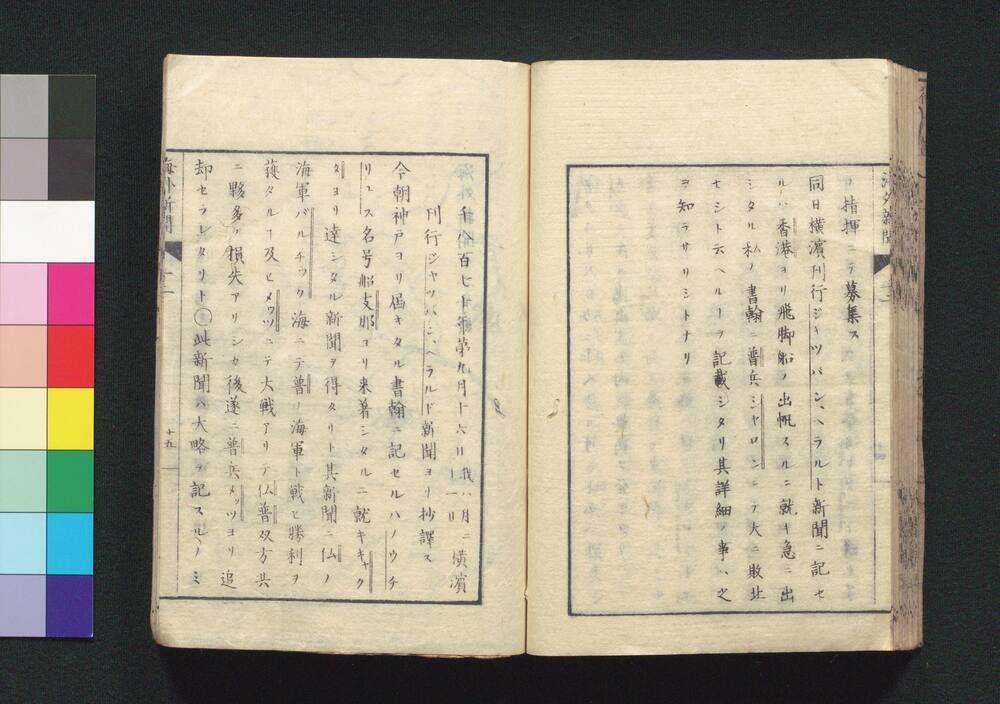 ノ指揮ニテ募集ス
同日横濱刊行ジャツパン、ヘラルト新聞ニ記セ
ルハ香港ヨリ飛脚船ノ出帆スルニ就キ急ニ出
シタル私ノ書翰ニ普兵シャロンニテ大ニ敗北
セシト云ヘルヿヲ記載シタリ其詳細ノ事ハ之
ヲ知ラサリシトナリ
千八百七十年第九月十六日我八月二十一日横濱
刊行ジャツパン、ヘラルド新聞ヨリ抄譯ス
今朝神戸ヨリ屆キタル書翰ニ記セルハノウチ
リユス名号船支那ヨリ来着シタルニ就キキャク
タヨリ達シタル新聞ヲ得タリト其新聞ニ仏ノ
海軍バルチック海ニテ普ノ海軍ト戦ヒ勝利ヲ
獲タルヿ及ヒメッツニテ大戦アリテ仏普双方共
ニ夥多ノ損失アリシカ後遂ニ普兵メッツヨリ追
却セラレタリト○此新聞ハ大略ヲ記スルノミ
海外新聞
十五